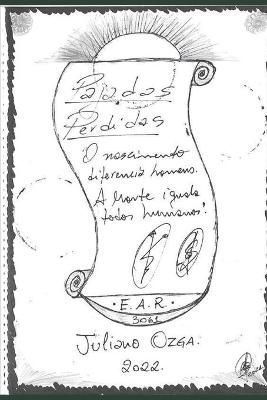 Pajadas
Perdidas
O nascimento
diferencia homens.
A Morte iguala
todos humanos!
• E. A. R. •
3061
Juliano OZGA.
2022.